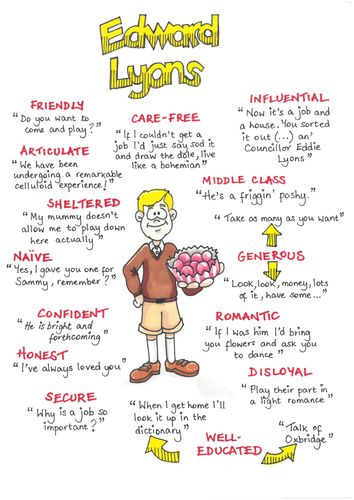 Edward
Lyons
FRIENDLY
"Do you want to
come and play?"
CARE-FREE
"If I couldn't get a
job I'd just say sod it
and draw the dole, live
like a bohemian"
INFLUENTIAL
"Now it's a job and
a house. You sorted
it out (...) an'
Councillor Eddie
Lyons"
ARTICULATE
"We have been
undergoing a remarkable
celluloid experience!"
MIDDLE CLASS
"He's a friggin' poshy."
SHELTERED
"My mummy doesn't
allow me to play down
here actually"
"Take as many as you want"
GENEROUS
"Look, look, money, lots
of it, have some..."
NAÏVE
"Yes, I gave you one for
Sammy, remember?"
CONFIDENT
"He is bright and
forthcoming"
ROMANTIC
"If I was him I'd bring
you flowers and ask you
to dance"
HONEST
"I've always loved you"
DISLOYAL
"Play their part in
a light romance"
SECURE
"Why is a job so
important?"
"When I get home I'll
look it up in the
dictionary"
WELL-
EDUCATED
"Talk of
Oxbridge"